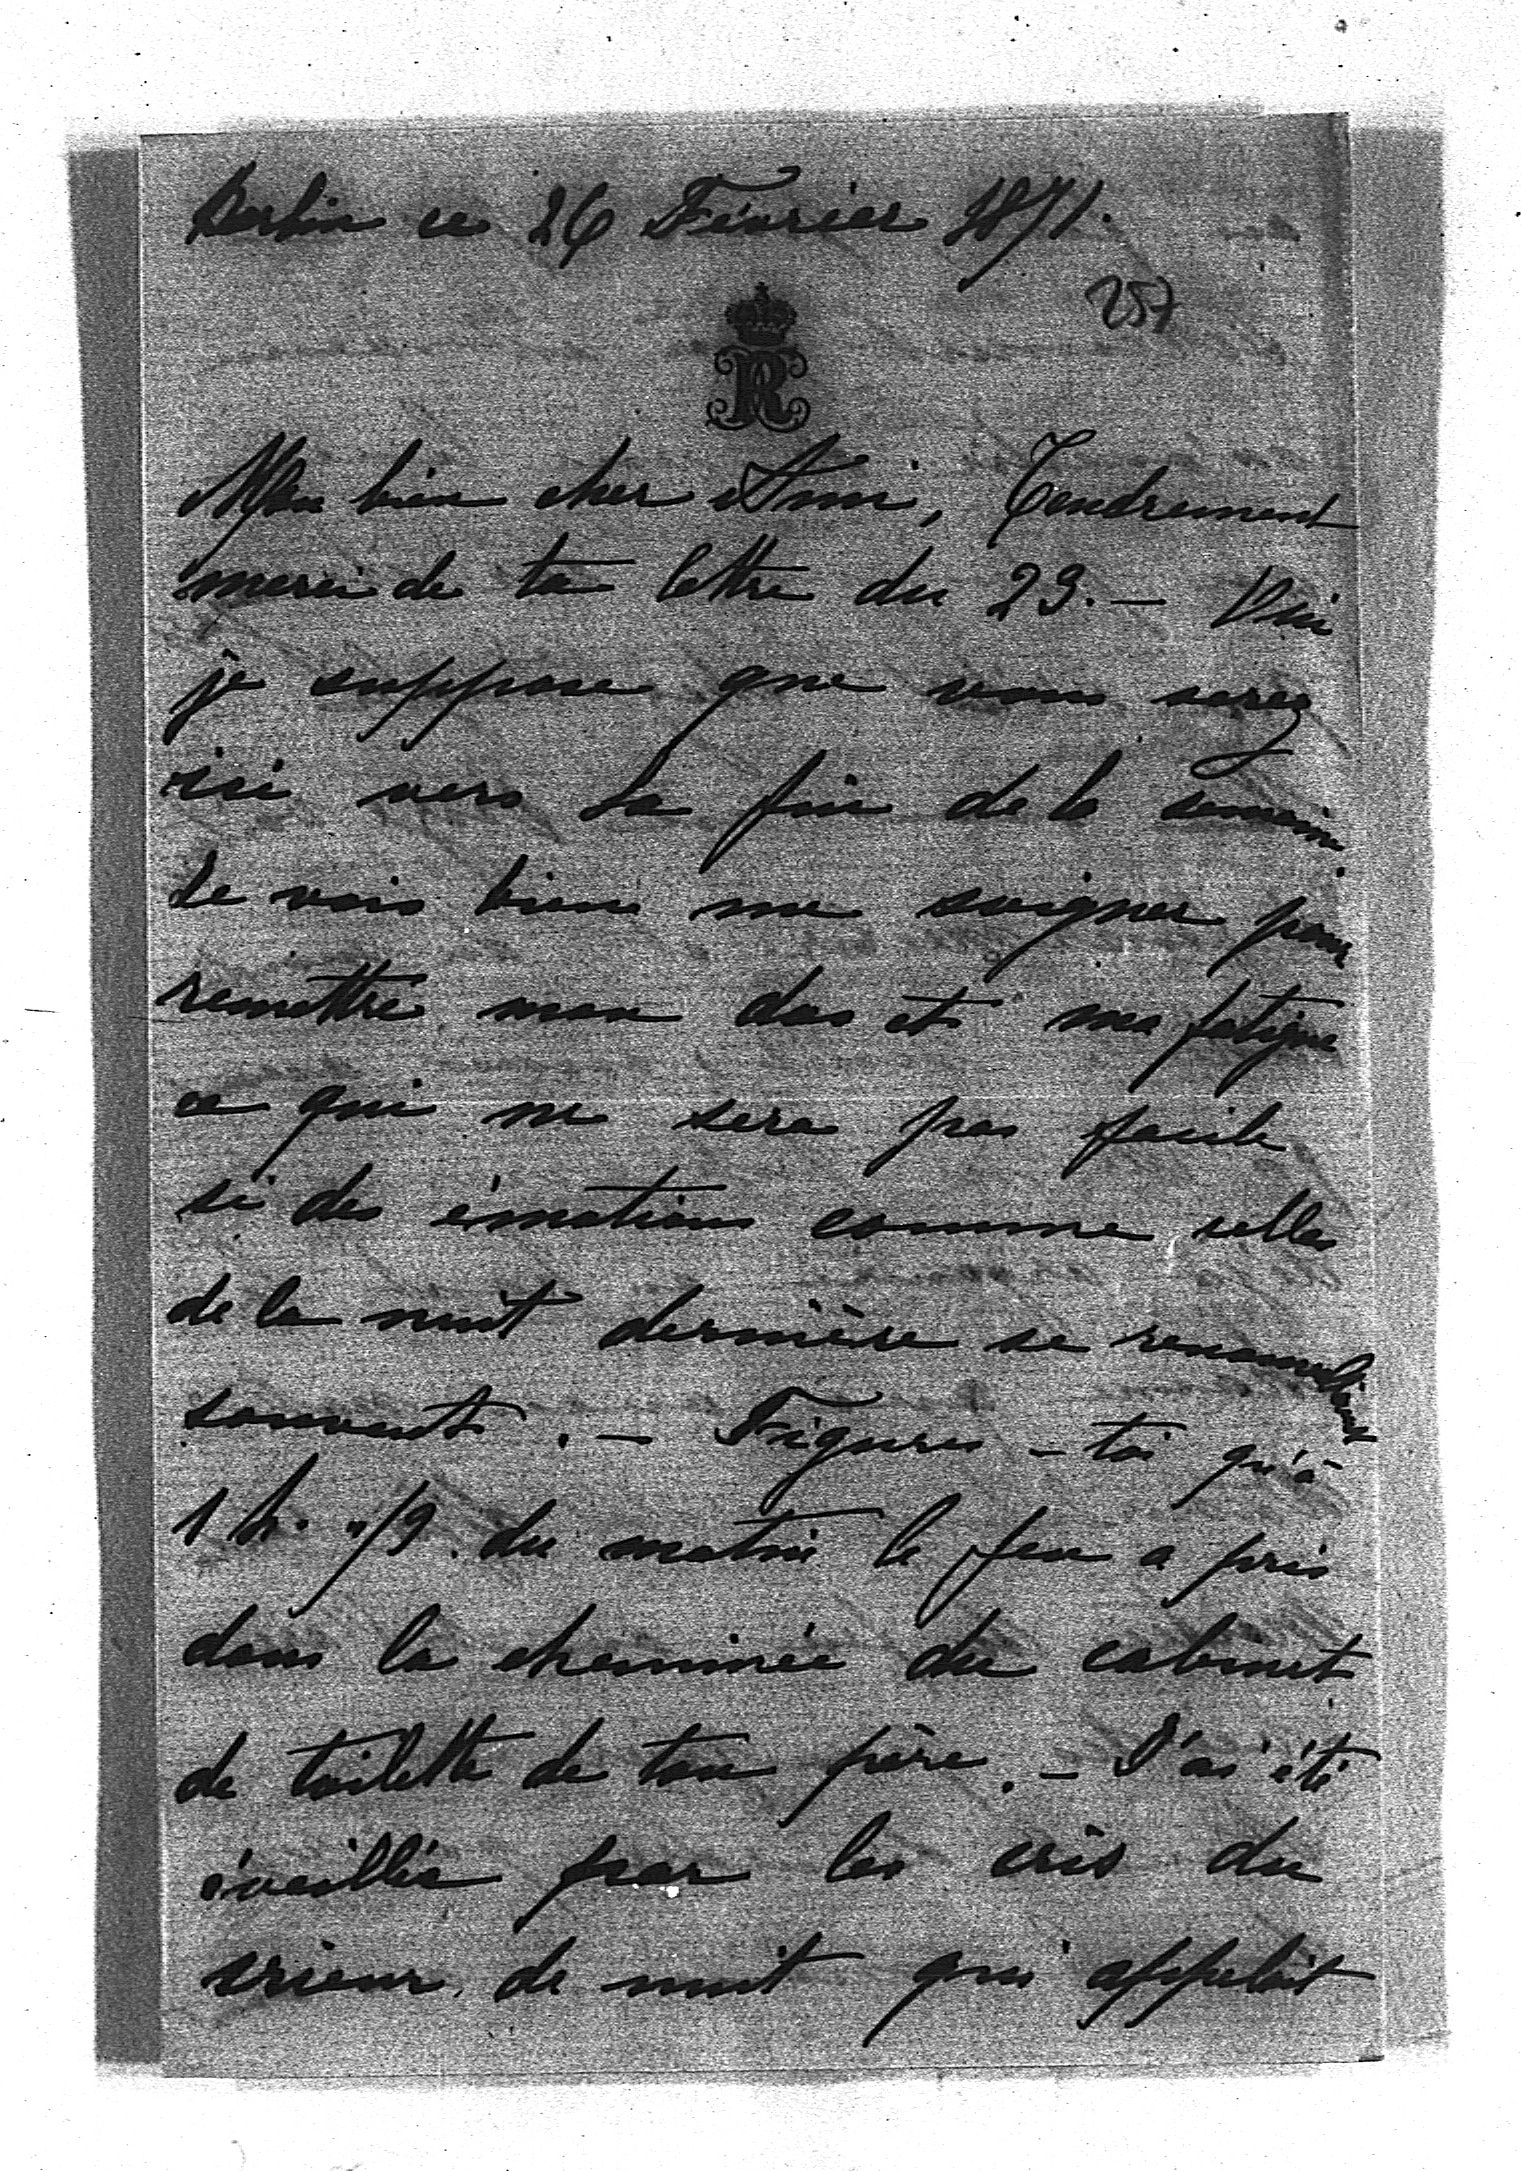 Berlin ce 26 Février 1871.
257
R
Mon bien cher Ami, Tendrement
merci de ta lettre du 23. — Oui
je suppose que vous serez
ici vers la fin de la semaine.
Je vais bien me soigner pour
remettre mon dos et ma fatigue
ce qui ne sera pas facile
si des émotions comme celles
de la nuit dernière se renouvelaient
souvent. — Figures-toi qu'à
1 h. 1/2 du matin le feu a pris
dans la cheminée du cabinet
de toilette de ton père. — J'ai été
éveillée par les cris du
crieur de nuit qui appelait